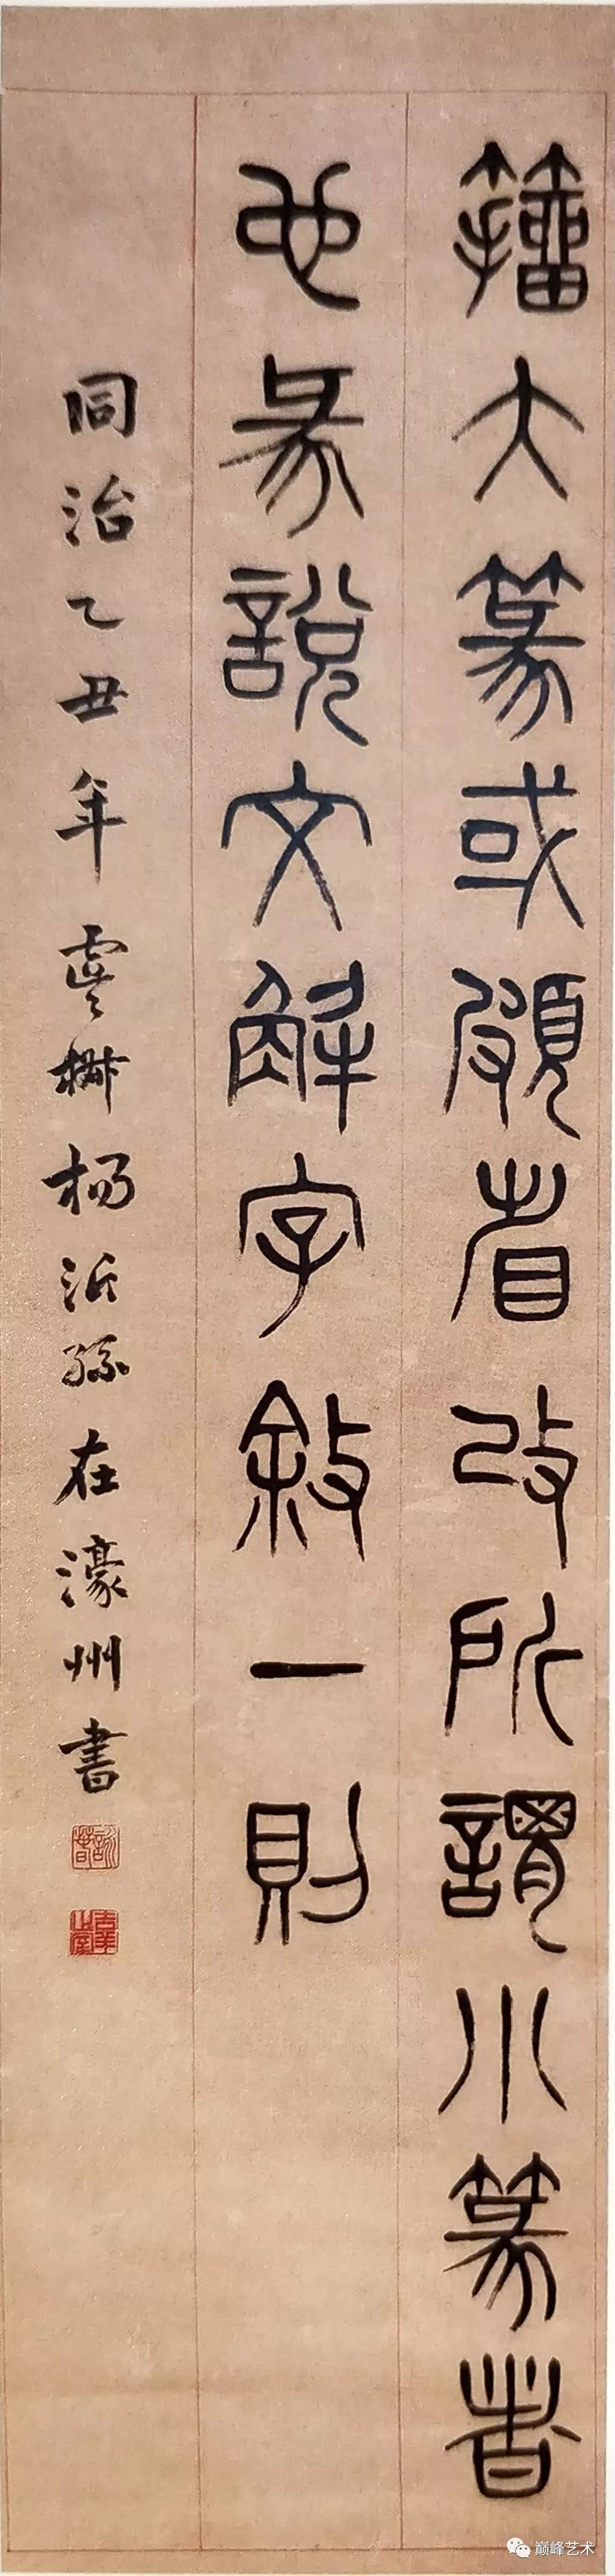 籀大篆或頗省改所謂小篆者
也彔說文解字敘一則
同治乙丑年虞楊沂孫在濠州書
詠春
巅峰艺术